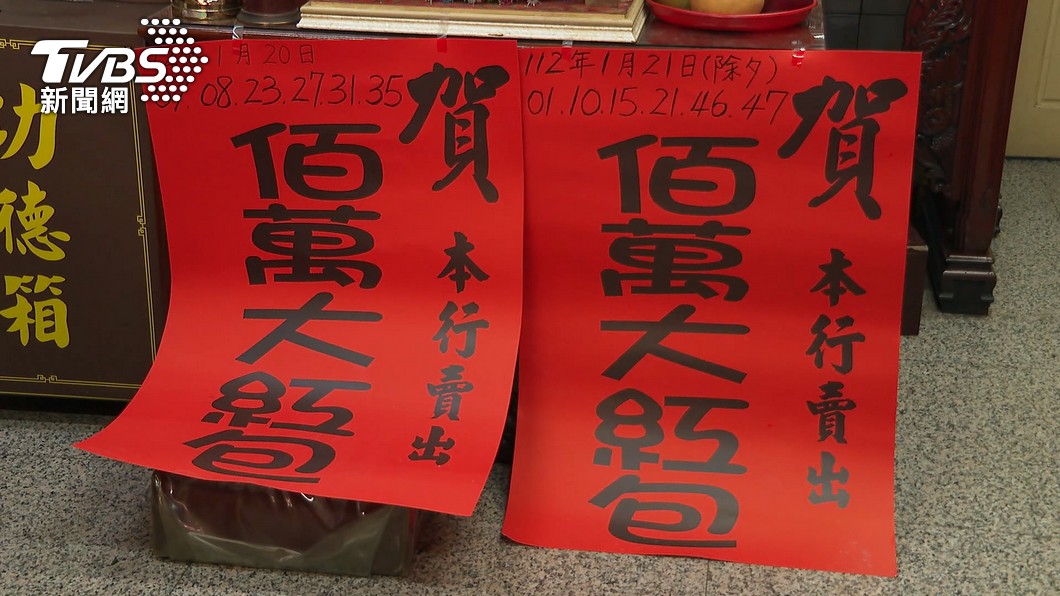 TVBS
新聞網
功
德
箱
1月20日
08.23.27.31.35
賀
本行賣出
佰萬大紅包
112年1月21日(除夕)
01.10.15.21.46.47
賀
本行賣出
佰萬大紅包